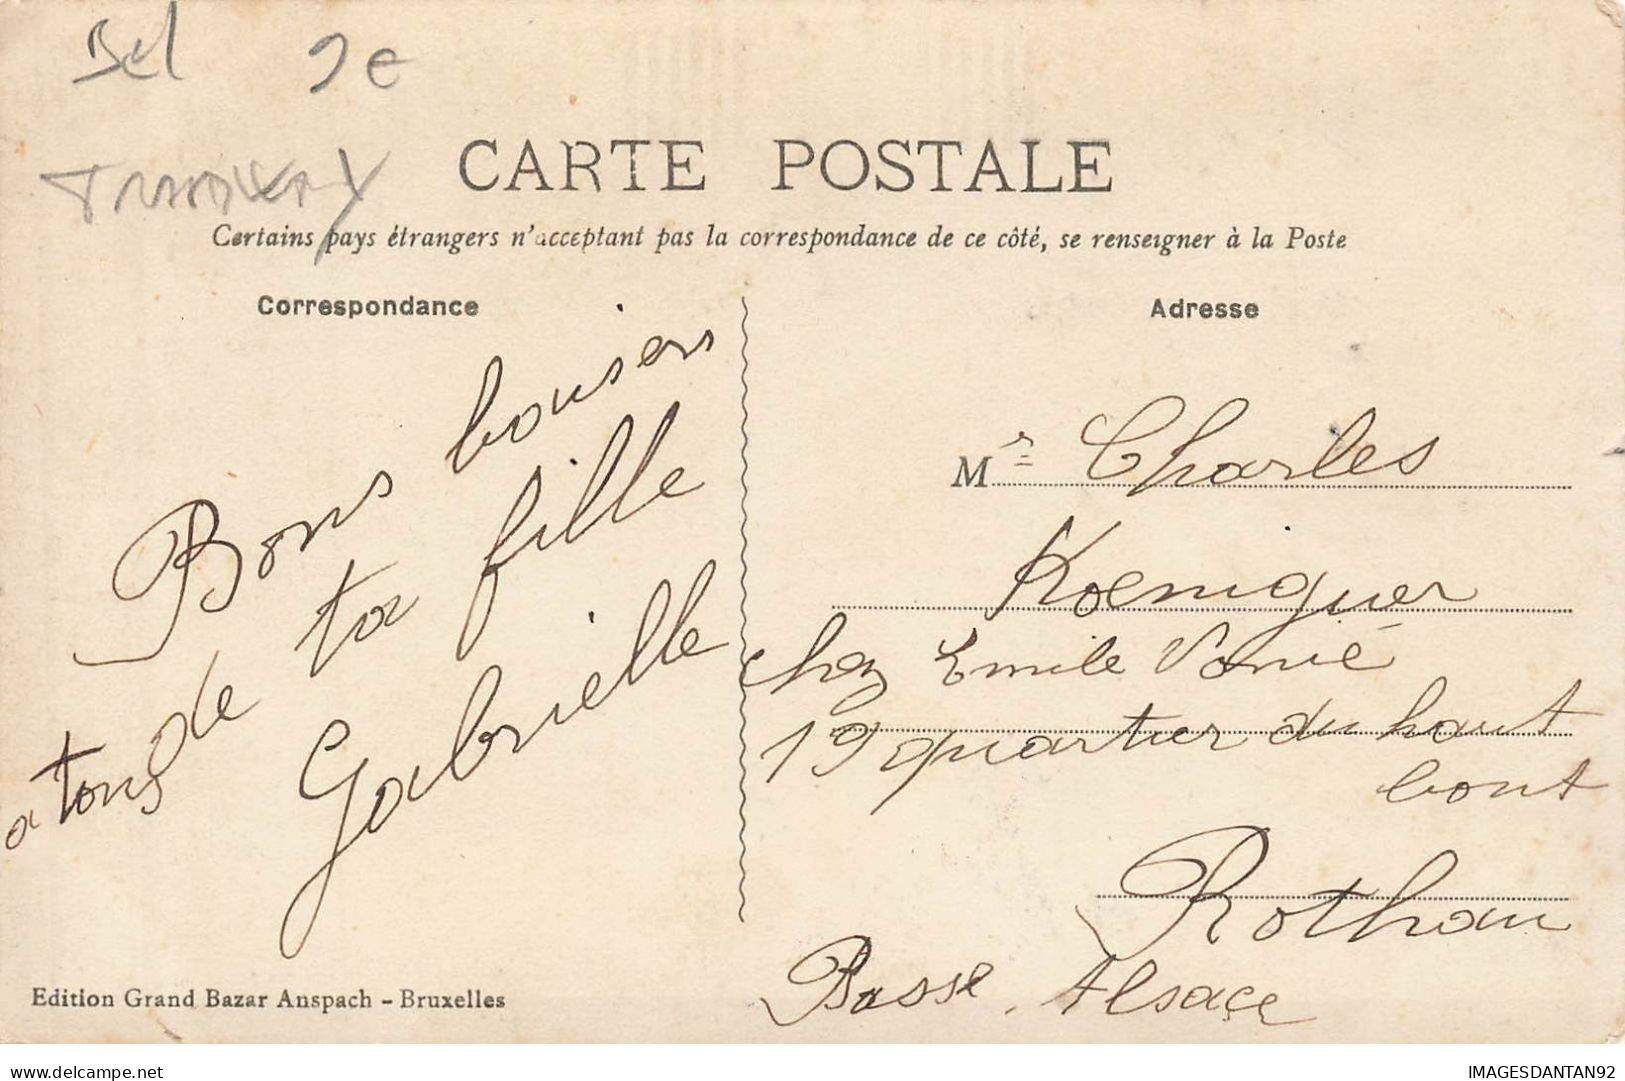 Bel 9e
TRAMWAY
CARTE POSTALE
Certains pays étrangers n'acceptant pas la correspondance de ce côté, se renseigner à la Poste
Correspondance
Bons bonsers
a tous de ta fille
Gabrielle
Edition Grand Bazar Anspach - Bruxelles
Adresse
Mr Charles
Koeniguer
chez Emile Vonié
19 quartier du haut
bout
Rothau
Basse Alsace
www.delcampe.net
IMAGESDANTAN92